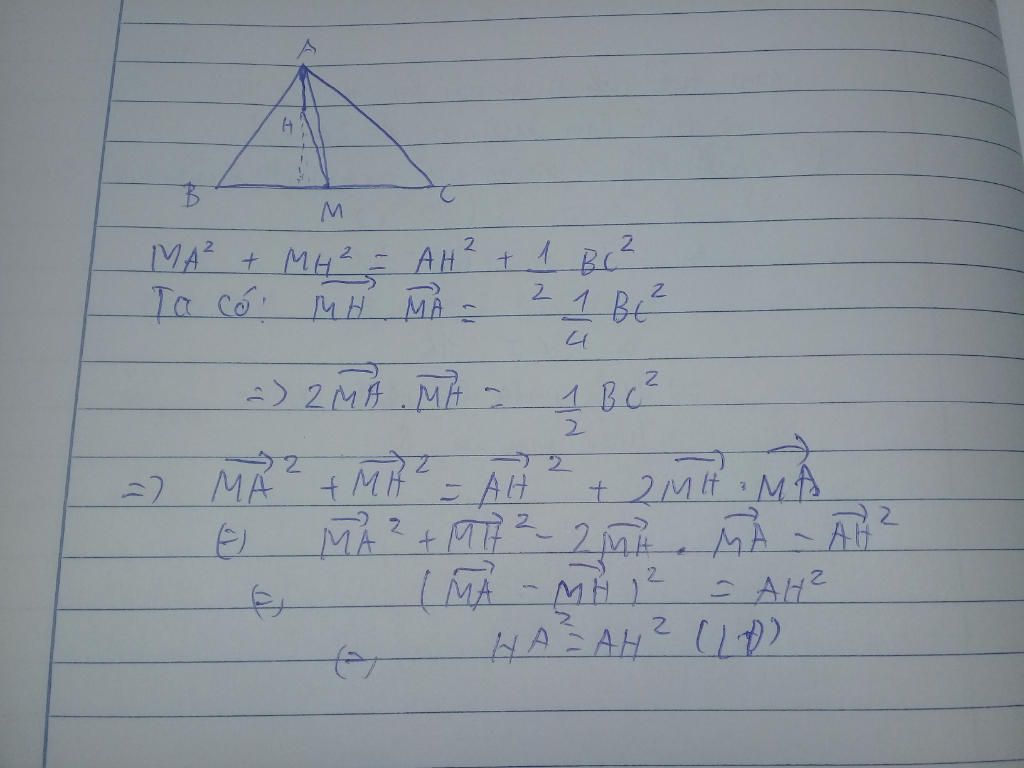 A
H
B
M
C
MA² + MH² = AH² + 1/2 BC²
Ta có: \overrightarrow{MH} . \overrightarrow{MA} = 1/4 BC²
=> 2\overrightarrow{MA} . \overrightarrow{MH} = 1/2 BC²
=> \overrightarrow{MA}² + \overrightarrow{MH}² = \overrightarrow{AH}² + 2\overrightarrow{MH} . \overrightarrow{MA}
(=) \overrightarrow{MA}² + \overrightarrow{MH}² - 2\overrightarrow{MH} . \overrightarrow{MA} = \overrightarrow{AH}²
(=) (\overrightarrow{MA} - \overrightarrow{MH})² = AH²
(=) HA² = AH² (LĐ)